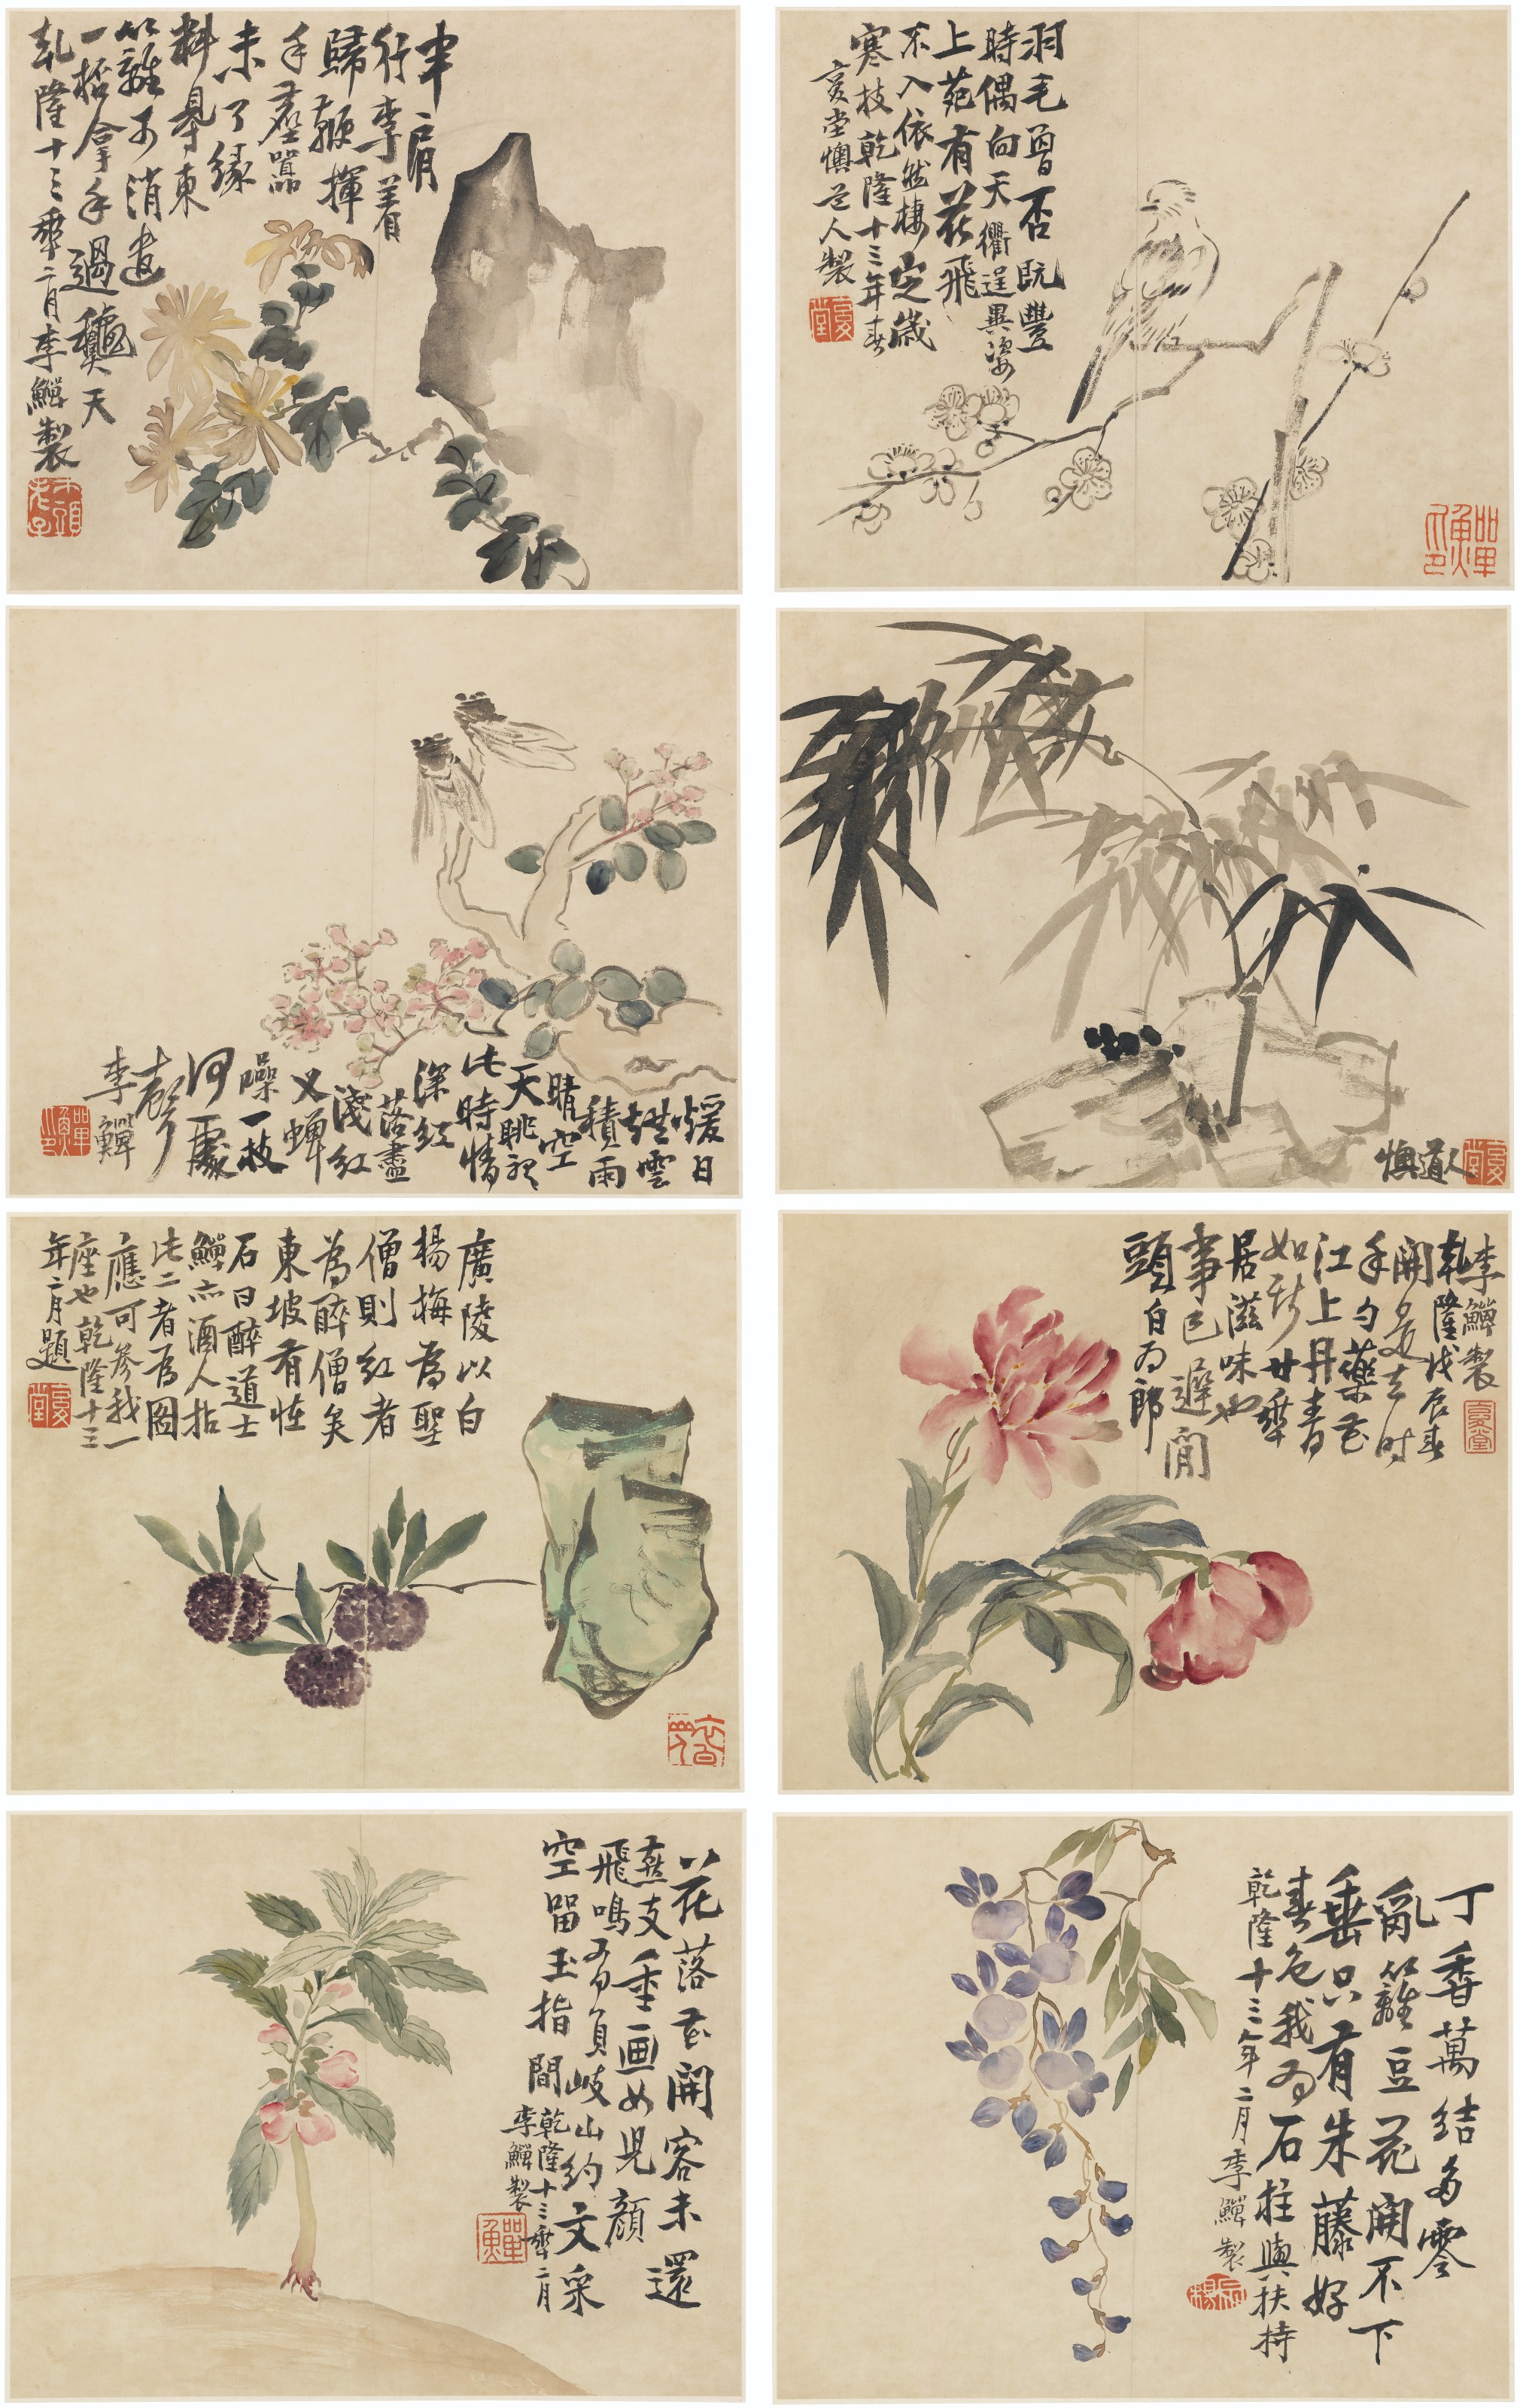 羽毛曾否既豐
時偶向天衢逞異姿
上苑有花飛
不入依然棲定歲
寒枝乾隆十三年春
復堂懊道人製
復堂
半肩
行李着
歸鞭揮
手塵囂
未了緣
料得東
籬可消遣
一杯拿手過穐天
乾隆十三年二月李鱓製
懊道人
復堂
煖日
雲
積雨
晴空
天眺
此時情
深紅
落盡
淺紅
又蟬
噪一枝
何處
聲
李鱓
頭白為郎
事已遲閒
居滋味也
如斯廿年
江上丹青
手勺藥花
開是去時
乾隆戊辰春
李鱓製
復堂
廣陵以白
楊梅為聖
僧則紅者
為醉僧矣
東坡有怪
石曰醉道士
鱓亦酒人拈
此二者為圖
應可參我一
座也乾隆十三
年二月題
復堂
丁香萬結多零
亂籬豆花開不下
垂只有朱藤好
春色我為石柱與扶持
乾隆十三年二月李鱓製
花落花開客未還
燕支重画如兒顏
飛鳴為負岐山約文采
空留玉指間乾隆十三年二月
李鱓製